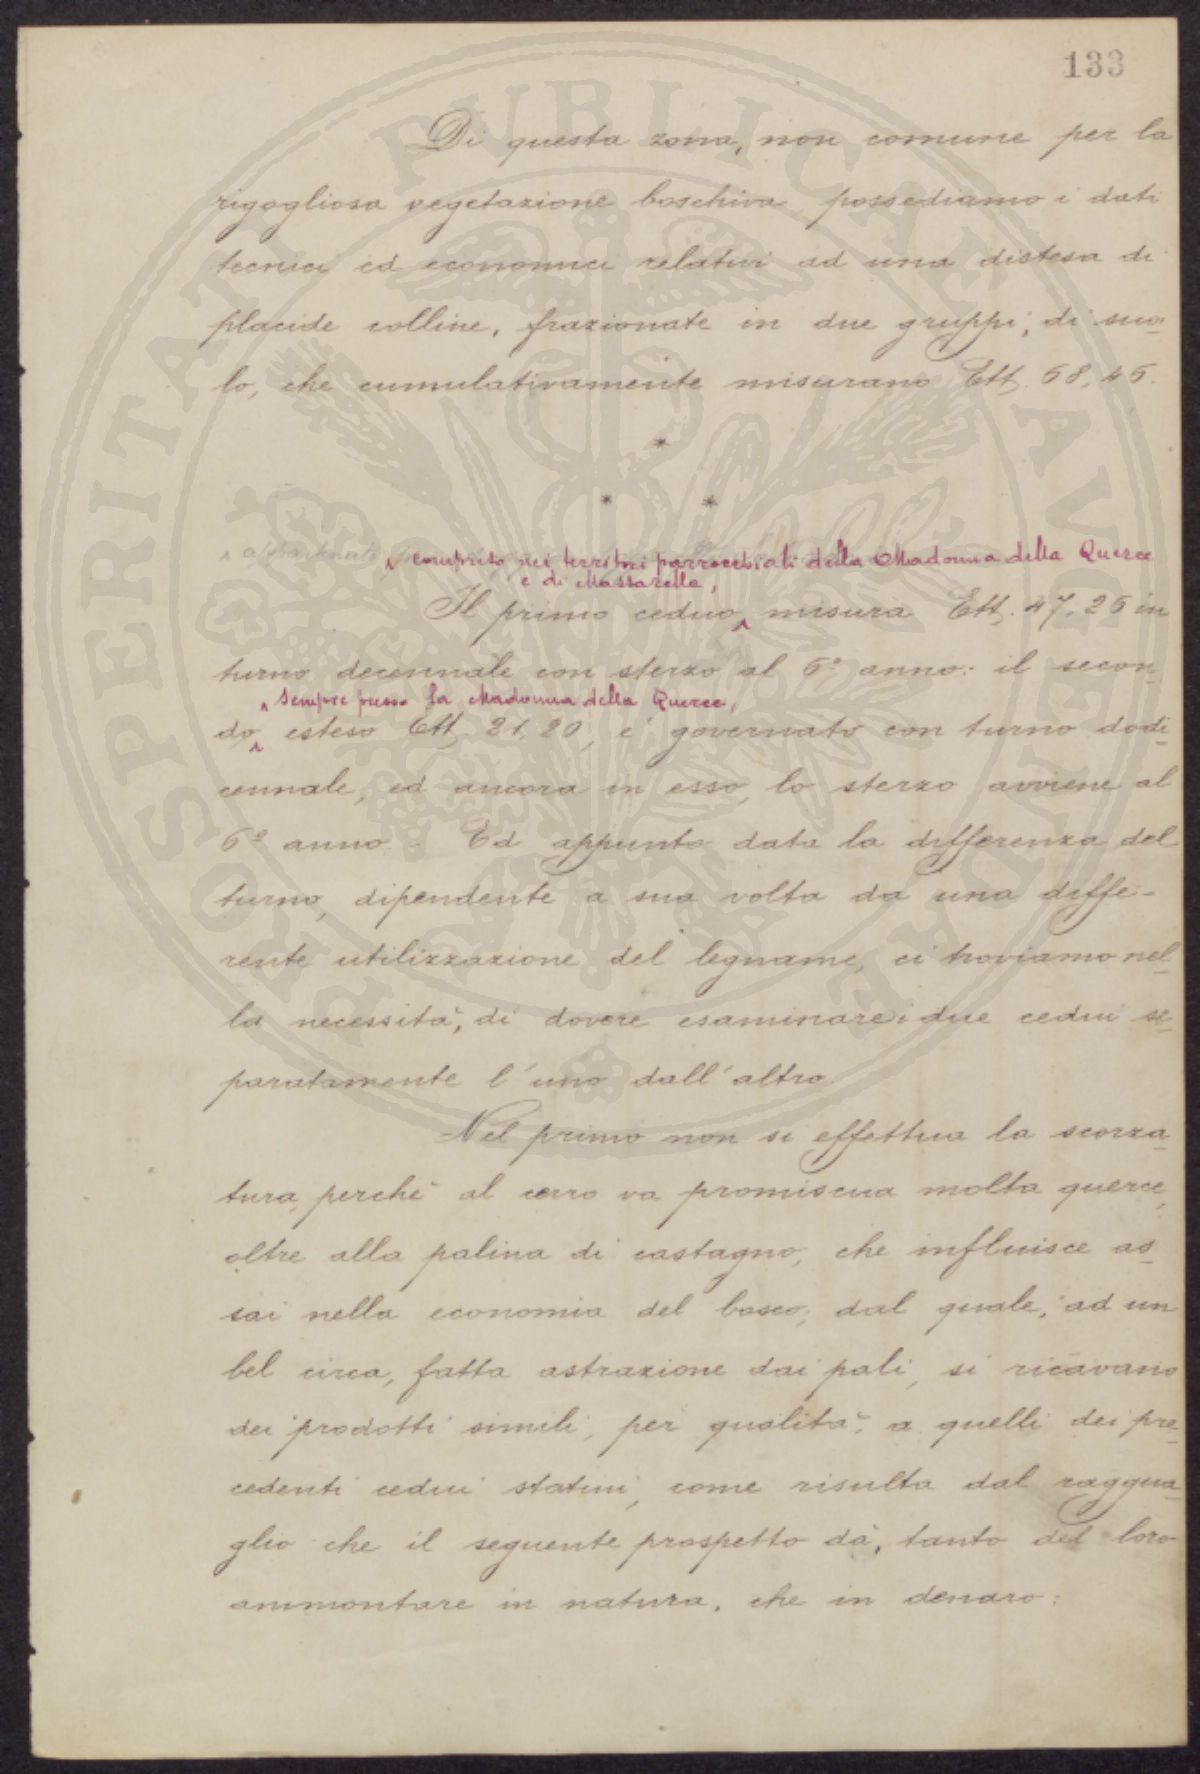 133
Di questa zona, non comune per la
rigogliosa vegetazione boschiva possediamo i dati
tecnici ed economici relativi ad una distesa di
placide colline, frazionate in due gruppi, di suo-
lo, che cumulativamente misurano Ett. 68,45.
*
* *
compreso nei territori parrocchiali della Madonna della Querce
e di Massarella,
Il primo ceduo, misura Ett. 47,25 in
turno decennale con sterzo al 6º anno: il secon-
sempre presso la Madonna della Querce,
do, esteso Ett. 21,20, è governato con turno dodi-
cennale, ed ancora in esso, lo sterzo avviene al
6º anno. - Ed appunto data la differenza del
turno, dipendente a sua volta da una diffe-
rente utilizzazione del legname, ci troviamo nel-
la necessità, di dovere esaminare i due cedui se-
paratamente l'uno dall'altro.
Nel primo non si effettua la scorza-
tura, perchè al cerro va promiscua molta querce,
oltre alla palina di castagno, che influisce as-
sai nella economia del bosco; dal quale, ad un
bel circa, fatta astrazione dai pali, si ricavano
dei prodotti simili, per qualità, a quelli dei pre-
cedenti cedui statini, come risulta dal raggua-
glio che il seguente prospetto dà, tanto del loro
ammontare in natura, che in denaro:
PROSPERITATI PUBLICAE AUGENDAE